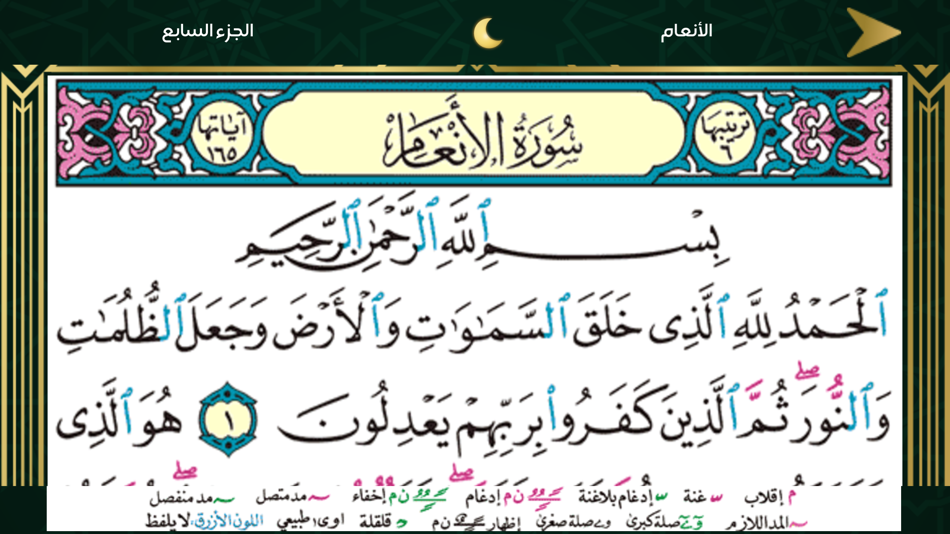 الأنعام
الجزء السابع
ترتيبها ٦
سُورَةُ الأَنْعَامِ
آياتها ١٦٥
بِسْمِ ٱللَّهِ ٱلرَّحْمَٰنِ ٱلرَّحِيمِ
ٱلْحَمْدُ لِلَّهِ ٱلَّذِى خَلَقَ ٱلسَّمَٰوَٰتِ وَٱلْأَرْضَ وَجَعَلَ ٱلظُّلُمَٰتِ
وَٱلنُّورَ ۖ ثُمَّ ٱلَّذِينَ كَفَرُوا۟ بِرَبِّهِمْ يَعْدِلُونَ ١ هُوَ ٱلَّذِى
م إقلاب س غنة س إدغام بلاغنة ن م إدغام ن م إخفاء مد متصل مد منفصل
المد اللازم صلة كبرى صلة صغرى إظهار ن م قلقلة اوى، طبيعي اللون الأزرق، لا يلفظ